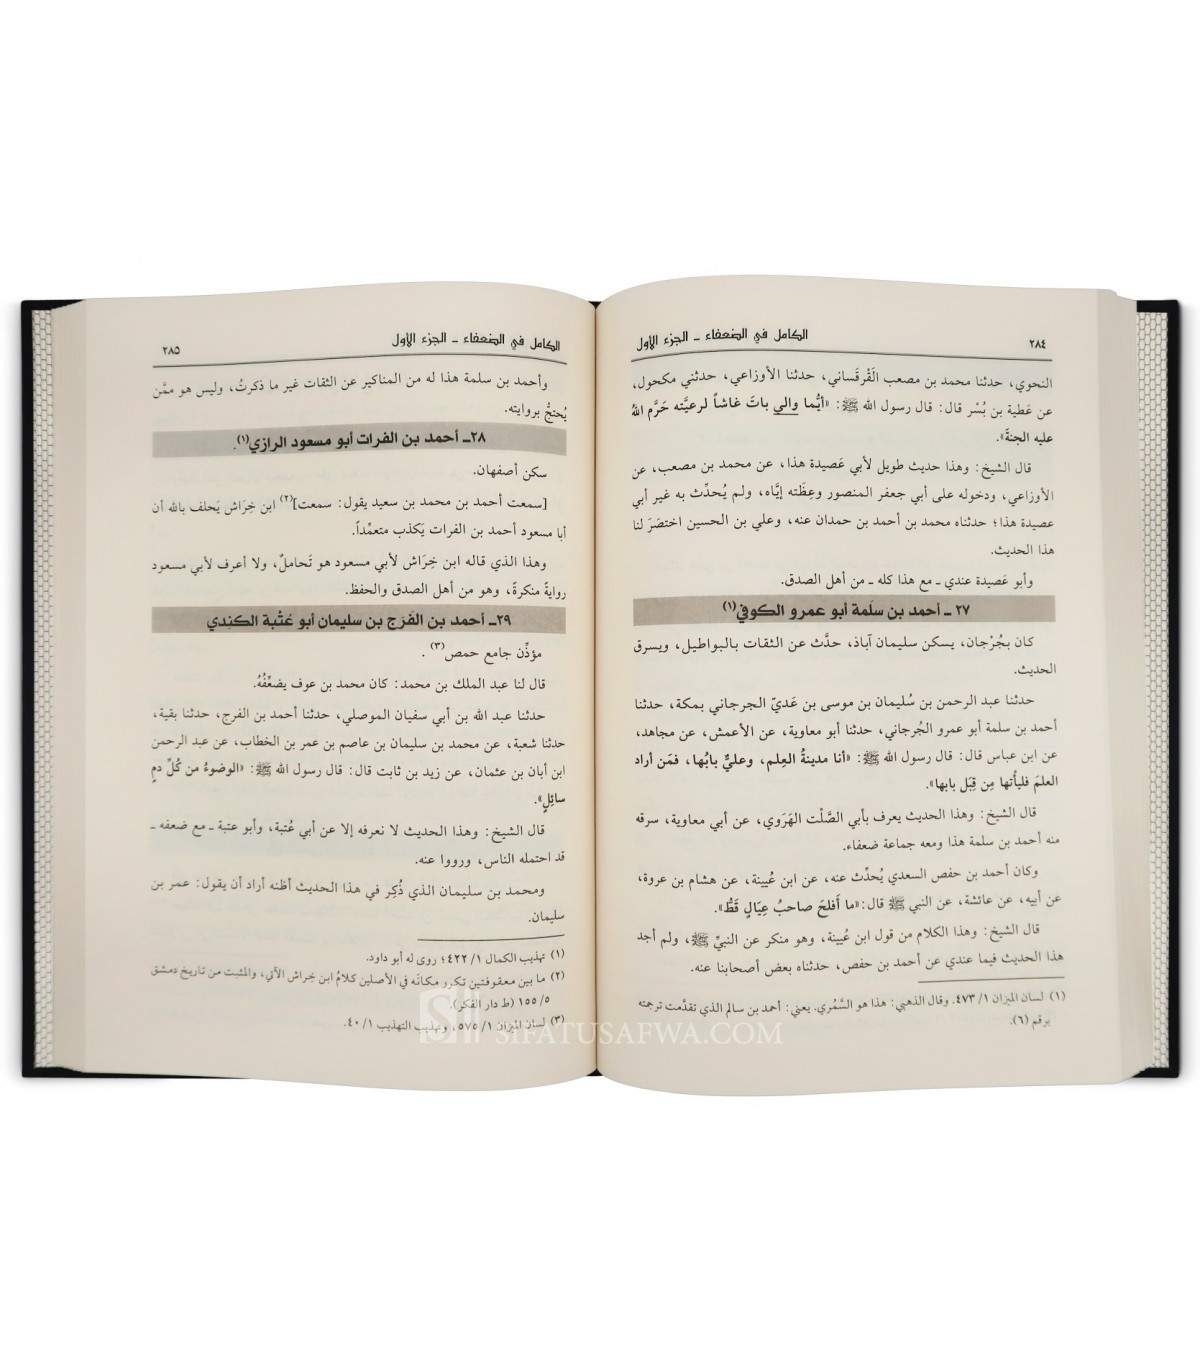 ٢٨٤
الكامل في الضعفاء ـ الجزء الأول
النحوي، حدثنا محمد بن مصعب القَرقَساني، حدثنا الأوزاعي، حدثني مكحول،
عن عَطية بن بُسْر قال: قال رسول الله ﷺ: «أيُّما والي باتَ غاشاً لرعيَّته حَرَّم اللهُ
عليه الجنةَ».
قال الشيخ: وهذا حديث طويل لأبي عَصيدة هذا، عن محمد بن مصعب، عن
الأوزاعي، ودخوله على أبي جعفر المنصور وعِظَته إيَّاه، ولم يُحدِّث به غير أبي
عصيدة هذا؛ حدثناه محمد بن أحمد بن حمدان عنه، وعلي بن الحسين اختصَرَ لنا
هذا الحديث.
وأبو عَصيدة عندي ـ مع هذا كله ـ من أهل الصدق.
٢٧ ـ أحمد بن سلَمة أبو عمرو الكوفي(١)
كان بجُرْجان، يسكن سليمان آباذ، حدَّث عن الثقات بالبواطيل، ويسرق
الحديث.
حدثنا عبد الرحمن بن سُليمان بن موسى بن عَديّ الجرجاني بمكة، حدثنا
أحمد بن سلمة أبو عمرو الجُرجاني، حدثنا أبو معاوية، عن الأعمش، عن مجاهد،
عن ابن عباس قال: قال رسول الله ﷺ: «أنا مدينةُ العِلم، وعليٌّ بابُها، فمَن أراد
العلمَ فليأْتها مِن قِبَل بابها».
قال الشيخ: وهذا الحديث يعرف بأبي الصَّلْت الهَرَوي، عن أبي معاوية، سرقه
منه أحمد بن سلمة هذا ومعه جماعة ضعفاء.
وكان أحمد بن حفص السعدي يُحدِّث عنه، عن ابن عُيينة، عن هشام بن عروة،
عن أبيه، عن عائشة، عن النبي ﷺ قال: «ما أَفلحَ صاحبُ عِيَالٍ قَطُّ».
قال الشيخ: وهذا الكلام من قول ابن عُيينة، وهو منكر عن النبيّ ﷺ، ولم أجد
هذا الحديث فيما عندي عن أحمد بن حفص، حدثناه بعض أصحابنا عنه.
(١) لسان الميزان ١/ ٤٧٣. وقال الذهبي: هذا هو السَّمُري. يعني: أحمد بن سالم الذي تقدَّمت ترجمته
برقم (٦).
الكامل في الضعفاء ـ الجزء الأول
٢٨٥
وأحمد بن سلمة هذا له من المناكير عن الثقات غير ما ذكرتُ، وليس هو ممَّن
يُحتجُّ بروايته.
٢٨ـ أحمد بن الفرات أبو مسعود الرازي(١).
سكن أصفهان.
[سمعت أحمد بن محمد بن سعيد يقول: سمعت](٢) ابن خِرَاش يَحلف بالله أن
أبا مسعود أحمد بن الفرات يَكذب متعمِّداً.
وهذا الذي قاله ابن خِرَاش لأبي مسعود هو تَحاملٌ، ولا أعرف لأبي مسعود
روايةً منكرةً، وهو من أهل الصدق والحفظ.
٢٩ـ أحمد بن الفَرَج بن سليمان أبو عُتْبة الكِندي
مؤذِّن جامع حمص(٣) .
قال لنا عبد الملك بن محمد: كان محمد بن عوف يضعِّفُهُ.
حدثنا عبد الله بن أبي سفيان الموصلي، حدثنا أحمد بن الفرج، حدثنا بقية،
حدثنا شعبة، عن محمد بن سليمان بن عاصم بن عمر بن الخطاب، عن عبد الرحمن
ابن أبان بن عثمان، عن زيد بن ثابت قال: قال رسول الله ﷺ: «الوضوءُ من كُلِّ دمٍ
سائِلٍ».
قال الشيخ: وهذا الحديث لا نعرفه إلا عن أبي عُتبة، وأبو عتبة ـ مع ضعفه ـ
قد احتمله الناس، ورووا عنه.
ومحمد بن سليمان الذي ذُكِر في هذا الحديث أظنه أراد أن يقول: عمر بن
سليمان.
(١) تهذيب الكمال ١/ ٤٢٢؛ روى له أبو داود.
(٢) ما بين معقوفتين تكرر مكانَه في الأصلين كلامُ ابن خِراش الآتي، والمثبت من تاريخ دمشق
٥/ ١٥٥ (ط دار الفكر).
(٣) لسان الميزان ١/ ٥٧٥، وتهذيب التهذيب ١/ ٤٠.
SIFATUSAFWA.COM